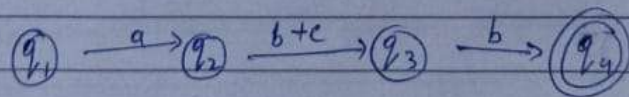 q₁ a q₂ b+c q₃ b q₄